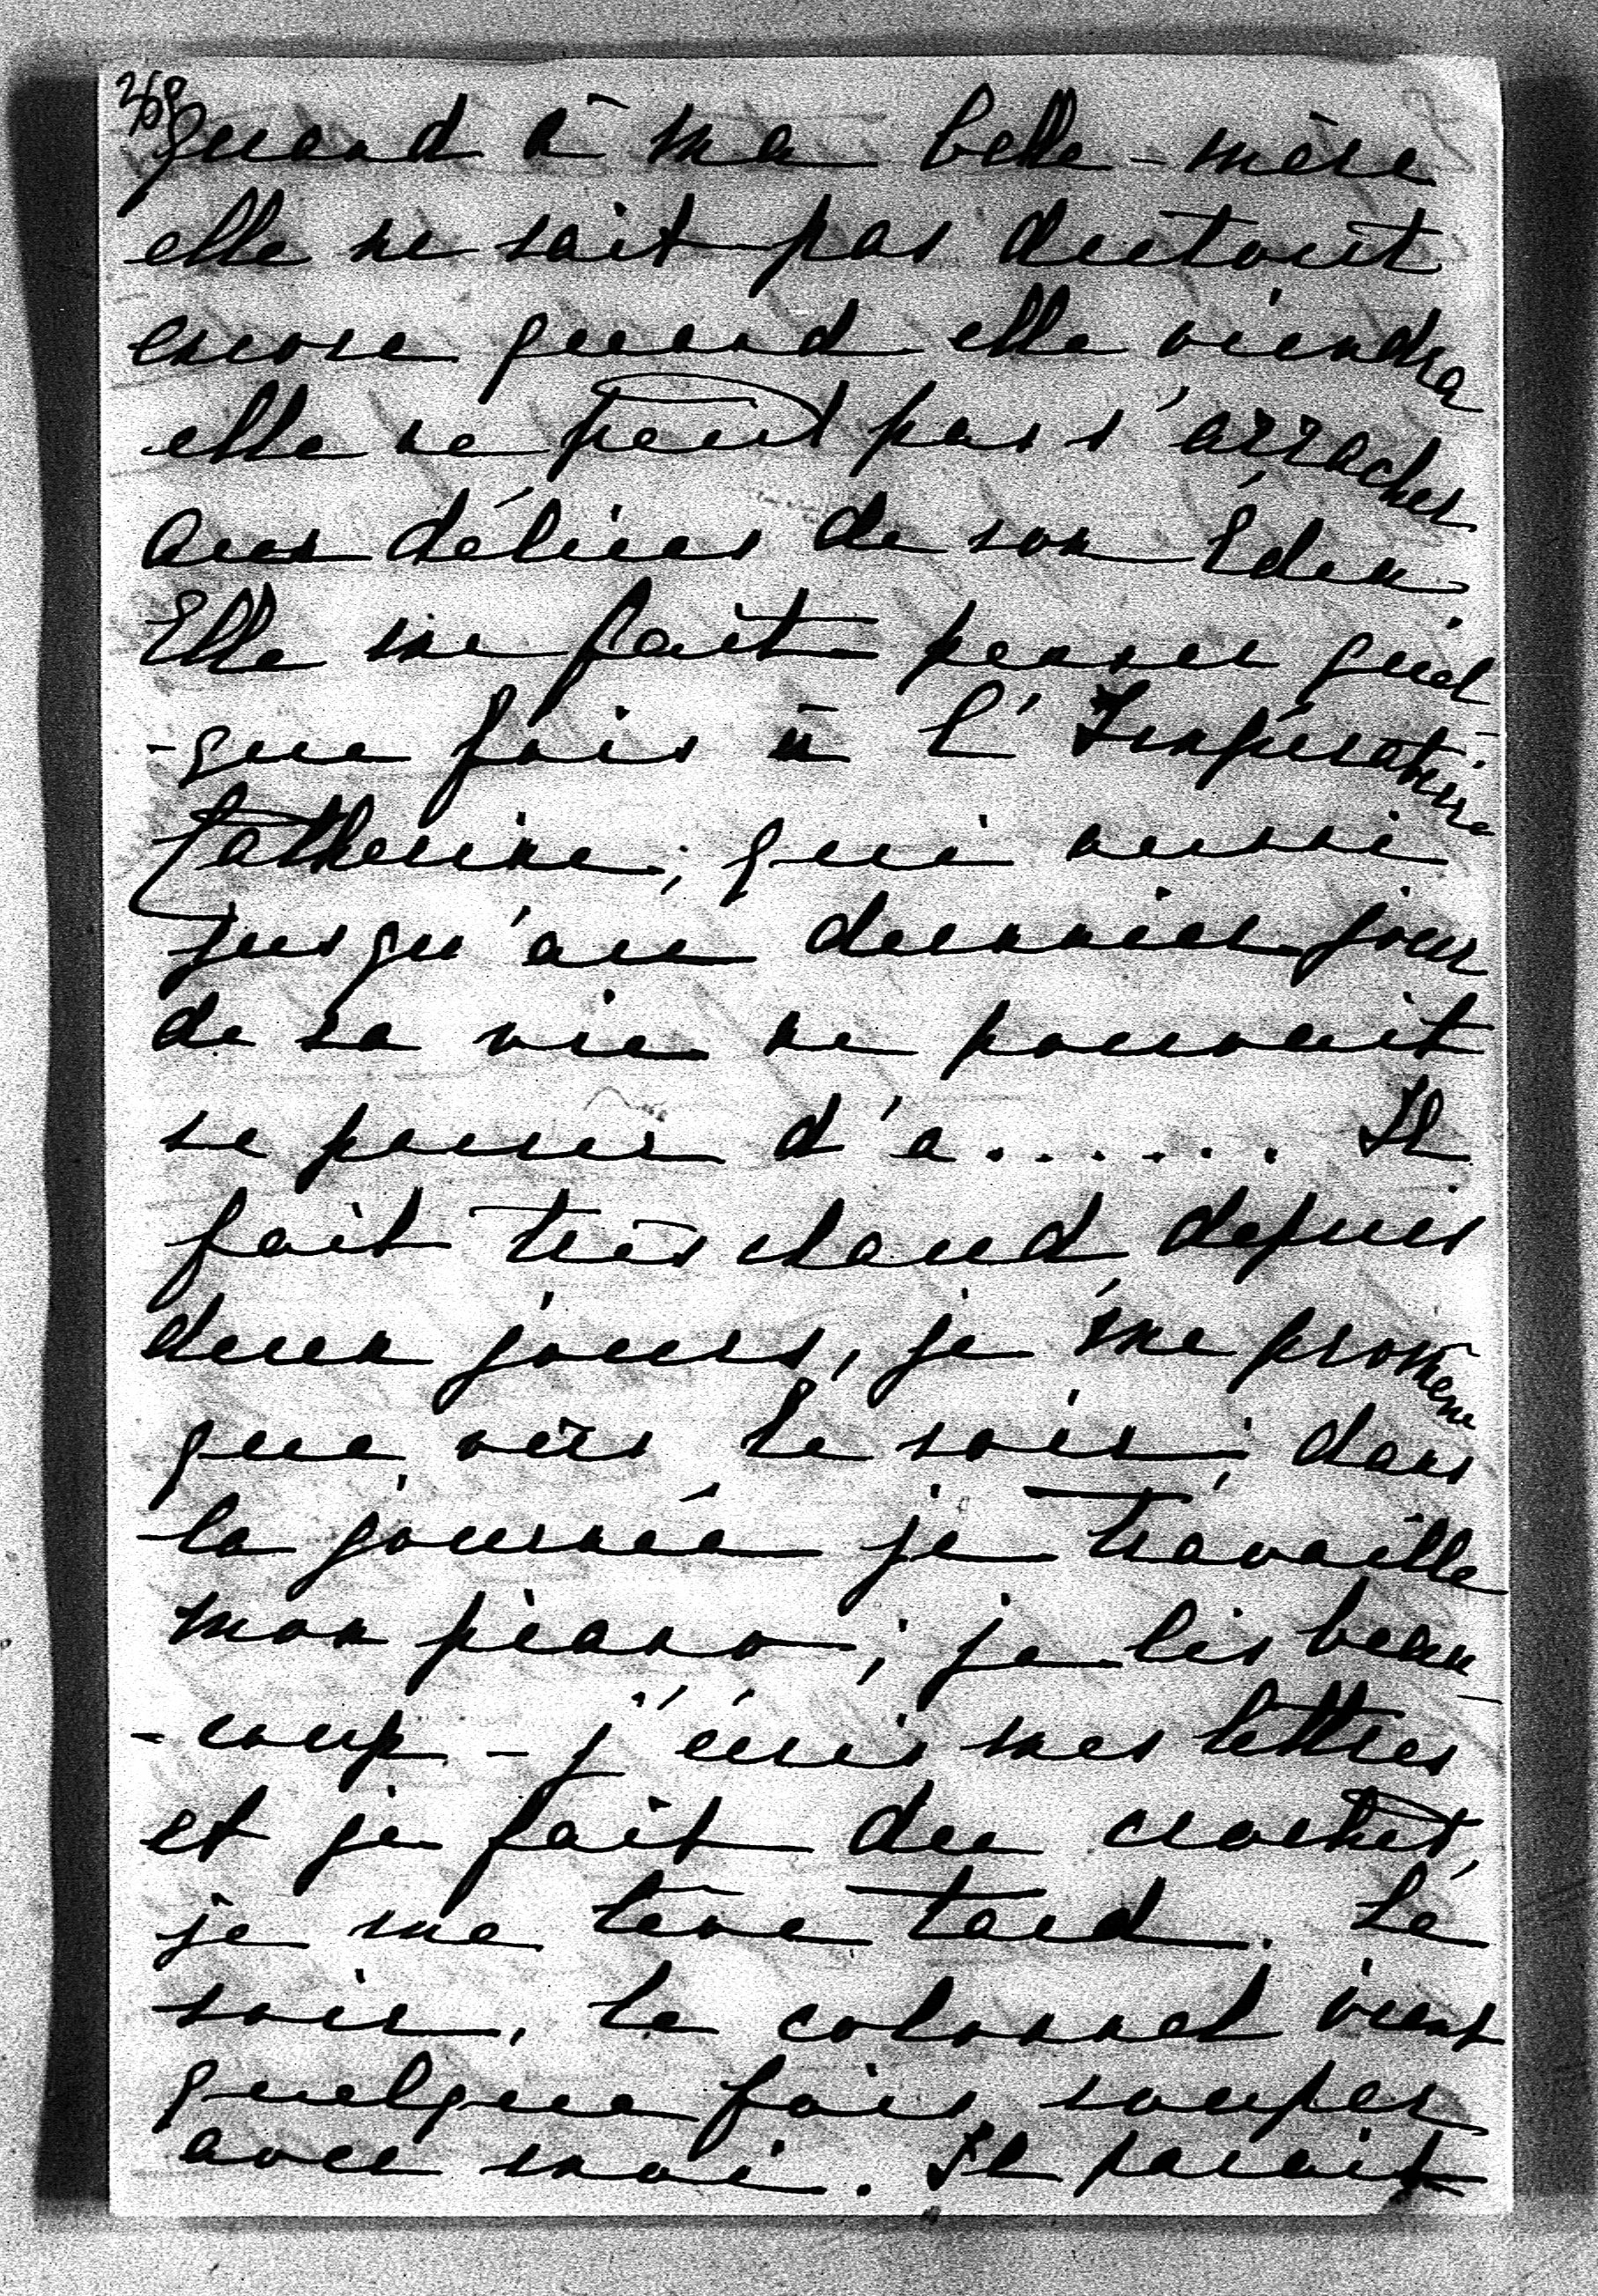 quand à ma belle-mère
elle ne sait pas dutout
encore quand elle viendra
elle ne peut pas s'arracher
aux délices de son Eden.
Elle me fait penser quel
-que fois à l'Impératrice
Catherine, qui aussi
jusqu'au dernier jour
de sa vie ne pouvait
se passer d'a...... Il
fait très chaud depuis
deux jours, je me promène
que vèrs le soir; dans
la journée je travaille
mon piano; je lis beau
-coup - j'écris mes lettres
et je fait du crochet,
je me lève tard. Le
soir, le colonnel vient
quelque fois souper
avec moi. Il parait